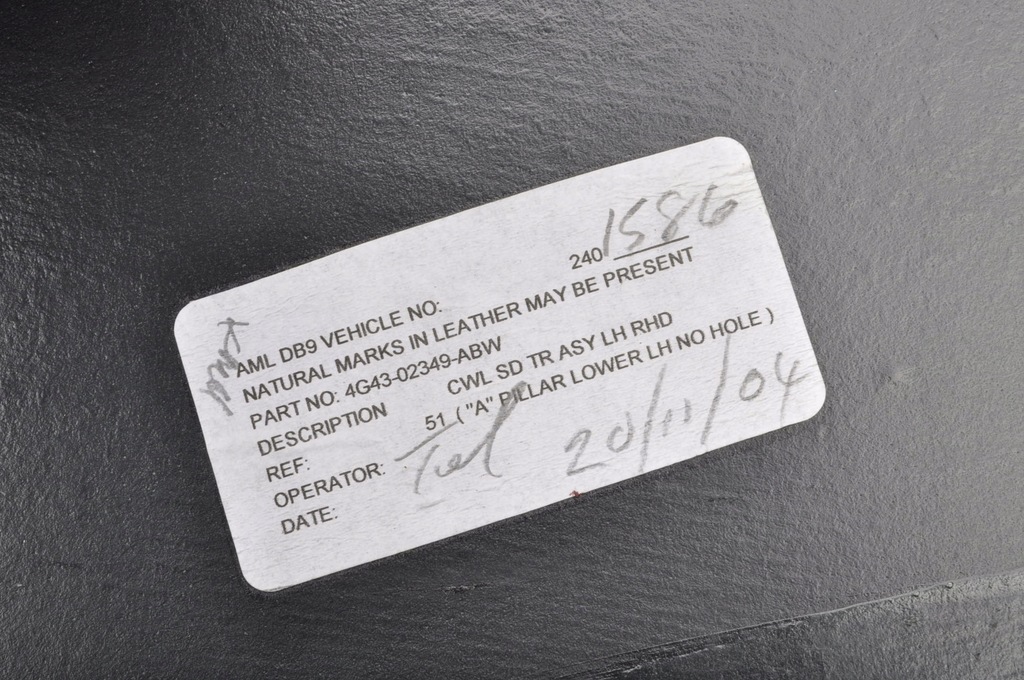 AML DB9 VEHICLE NO: 240 1586
NATURAL MARKS IN LEATHER MAY BE PRESENT
PART NO: 4G43-02349-ABW
DESCRIPTION CWL SD TR ASY LH RHD
REF: 51 ( "A" PILLAR LOWER LH NO HOLE )
OPERATOR:
DATE: 20/11/04